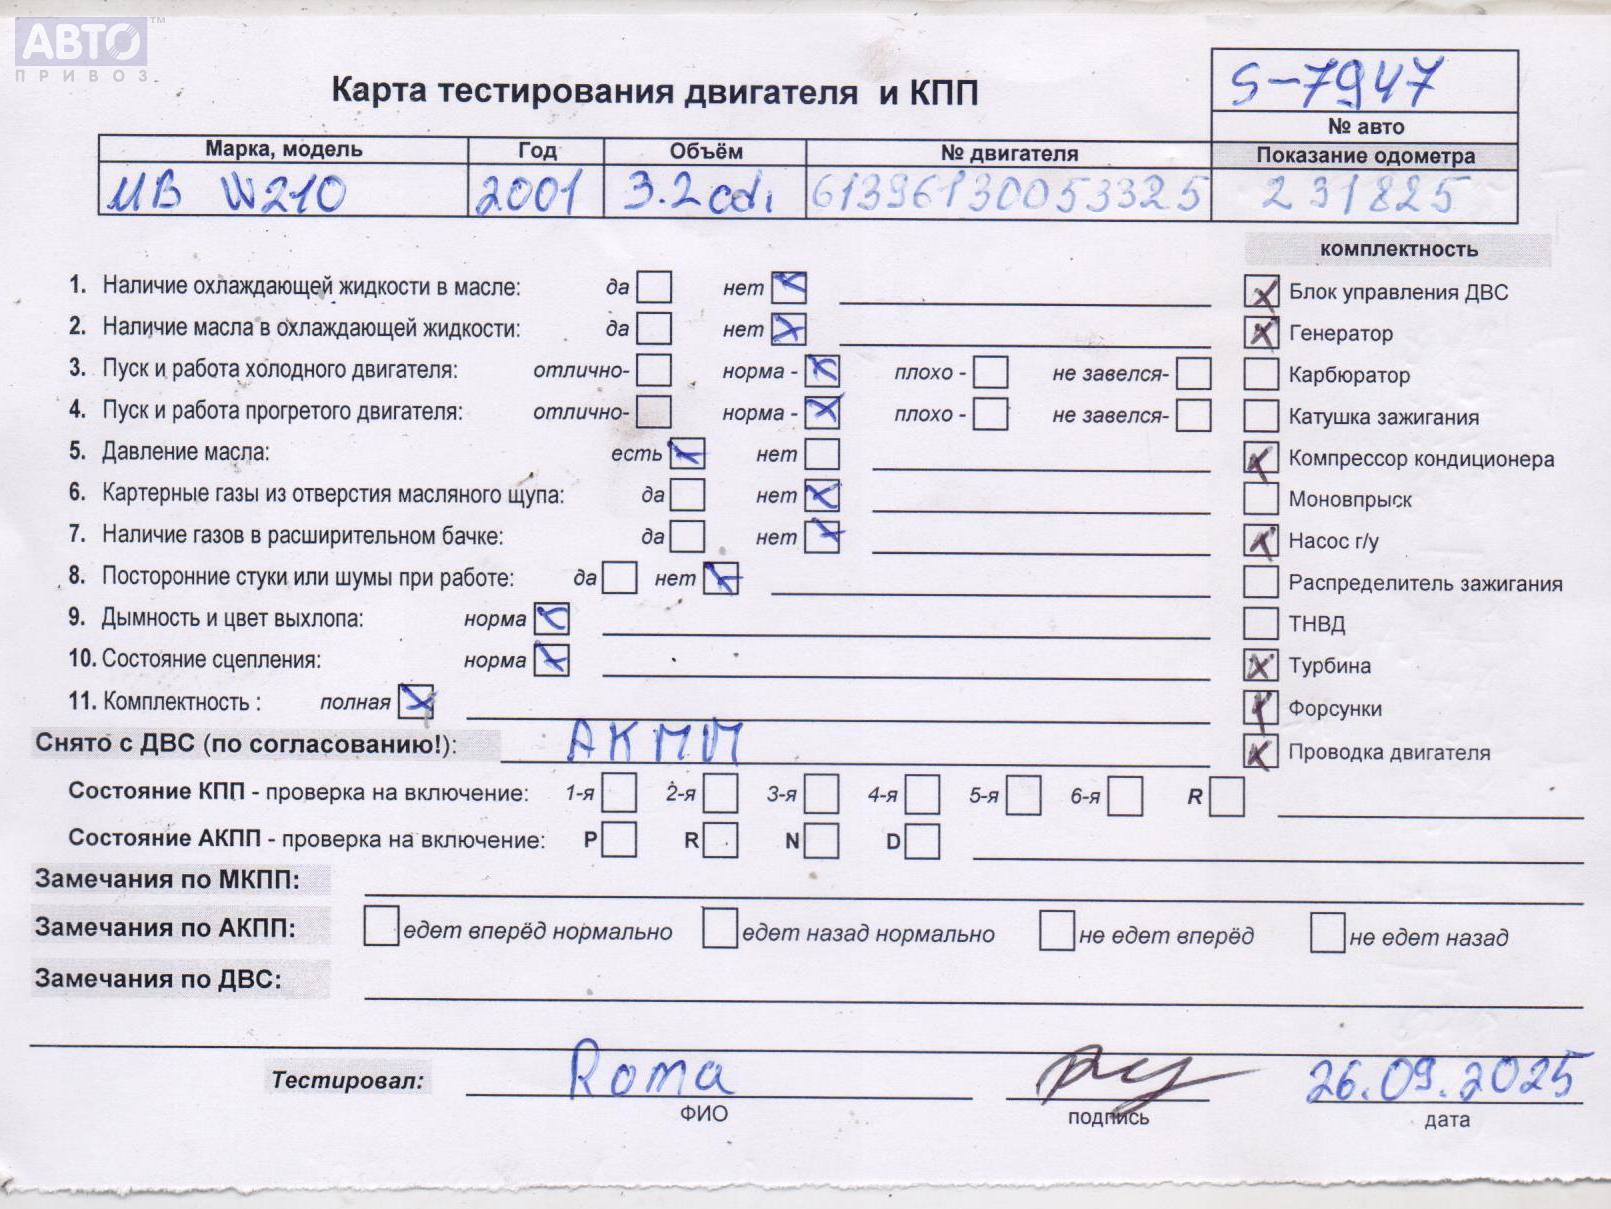 АВТО™
ПРИВОЗ
Карта тестирования двигателя и КПП
S-7947
№ авто
Марка, модель Год Объём № двигателя Показание одометра
MB W210 2001 3.2 cdi 61396130053325 231825
комплектность
1. Наличие охлаждающей жидкости в масле: да нет Блок управления ДВС
2. Наличие масла в охлаждающей жидкости: да нет Генератор
3. Пуск и работа холодного двигателя: отлично- норма - плохо - не завелся- Карбюратор
4. Пуск и работа прогретого двигателя: отлично- норма - плохо - не завелся- Катушка зажигания
5. Давление масла: есть нет Компрессор кондиционера
6. Картерные газы из отверстия масляного щупа: да нет Моновпрыск
7. Наличие газов в расширительном бачке: да нет Насос г/у
8. Посторонние стуки или шумы при работе: да нет Распределитель зажигания
9. Дымность и цвет выхлопа: норма ТНВД
10. Состояние сцепления: норма Турбина
11. Комплектность : полная Форсунки
Снято с ДВС (по согласованию!): АКПП Проводка двигателя
Состояние КПП - проверка на включение: 1-я 2-я 3-я 4-я 5-я 6-я R
Состояние АКПП - проверка на включение: P R N D
Замечания по МКПП:
Замечания по АКПП: едет вперёд нормально едет назад нормально не едет вперёд не едет назад
Замечания по ДВС:
Тестировал: Roma 26.09.2025
ФИО подпись дата